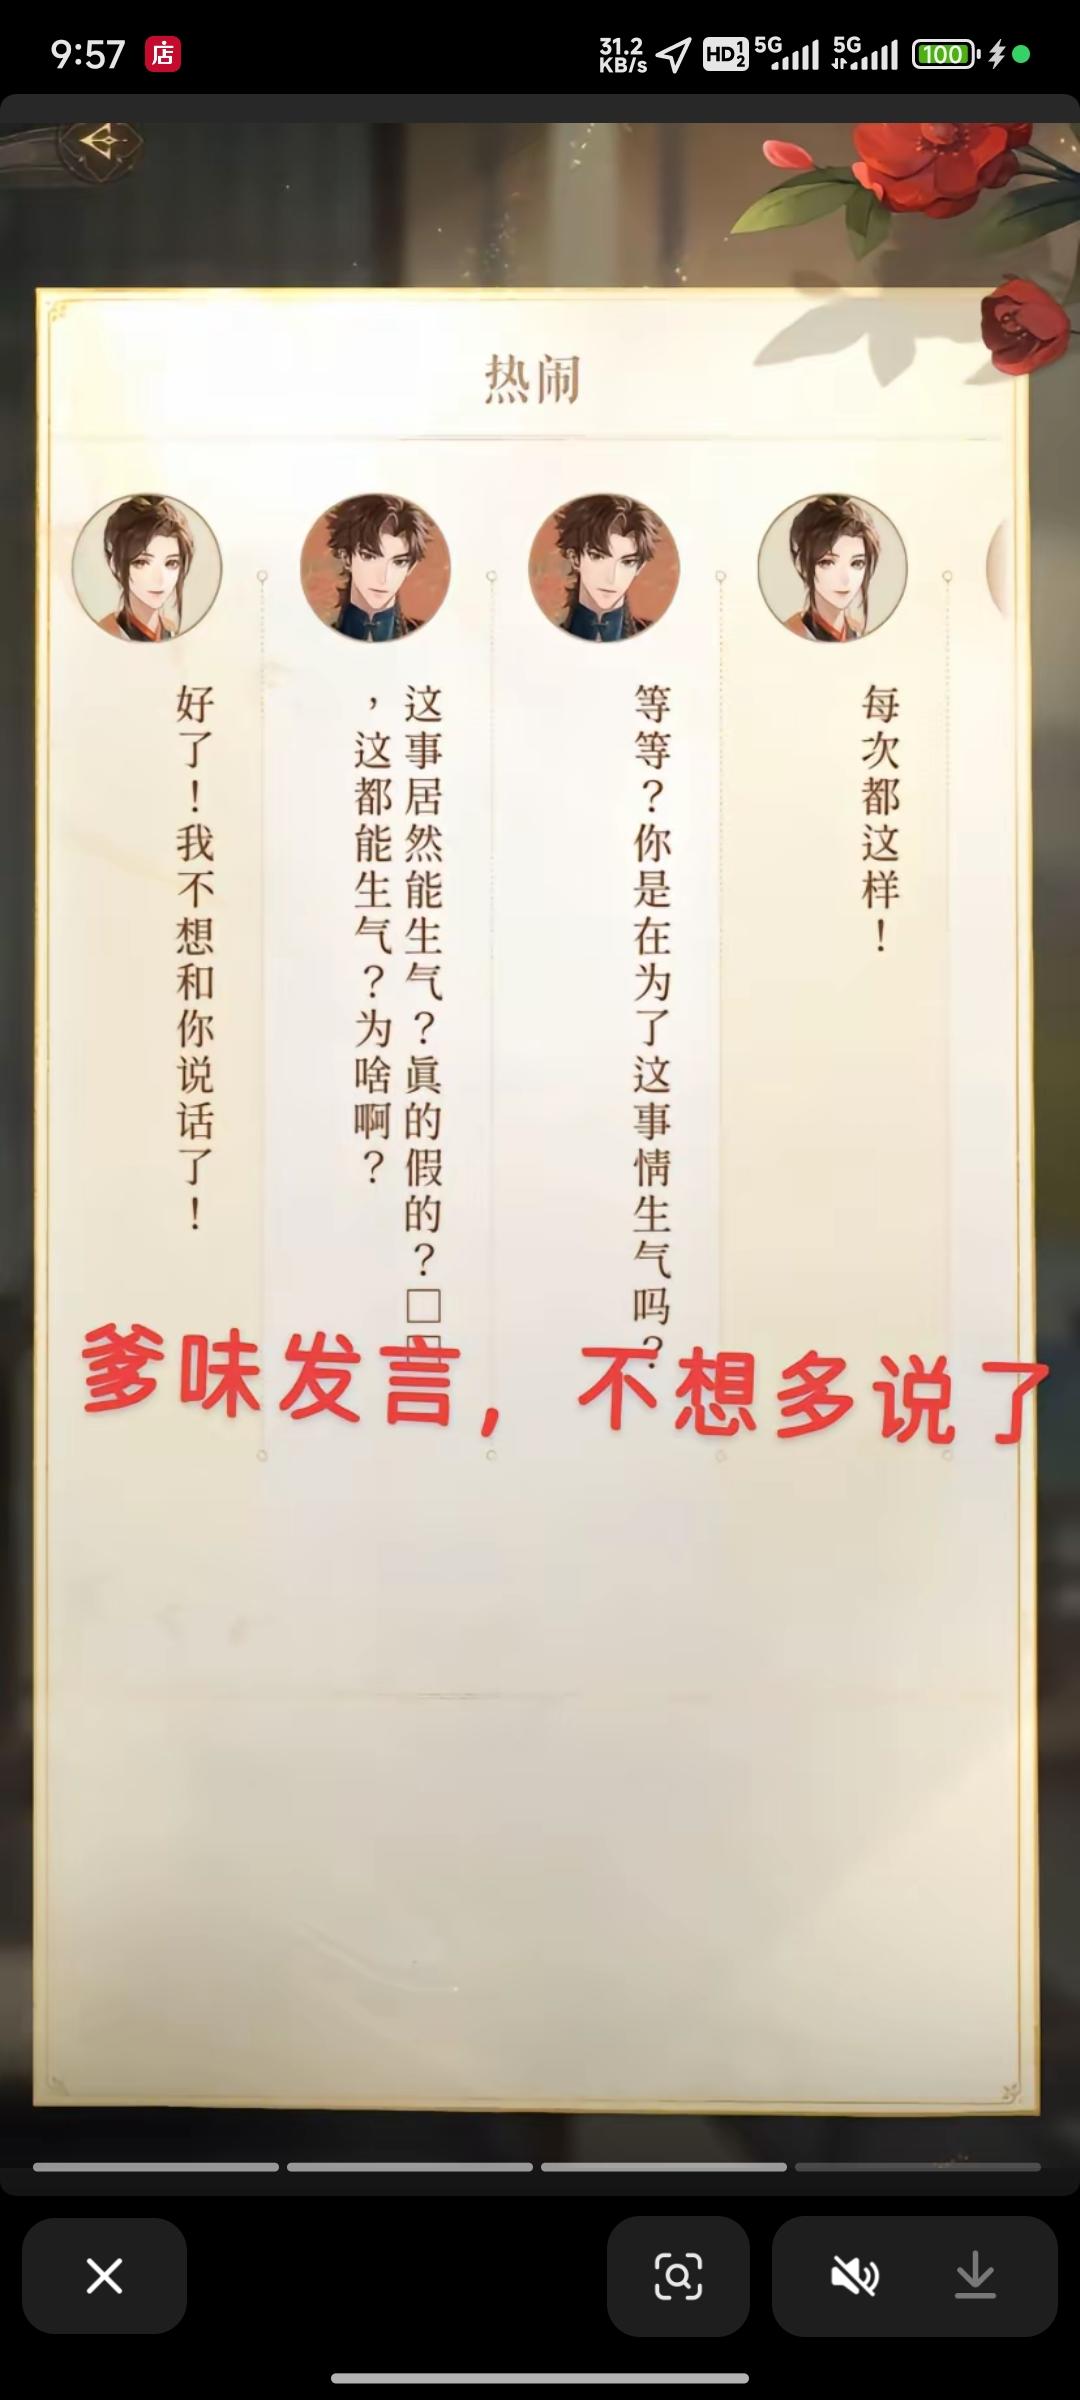 9:57
店
31.2
KB/s
HD 1 2
5G
5G
100
热闹
每次都这样！
等等？你是在为了这事情生气吗？
这事居然能生气？眞的假的？□□
，这都能生气？为啥啊？
好了！我不想和你说话了！
爹味发言，不想多说了